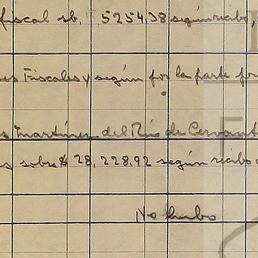 fiscal sb. 5254.38 según recibo,
es Fiscales y según for la parte for
s Martínez del Río de Cervant
s sobre $ 28,228.92 según recibo
No hubo